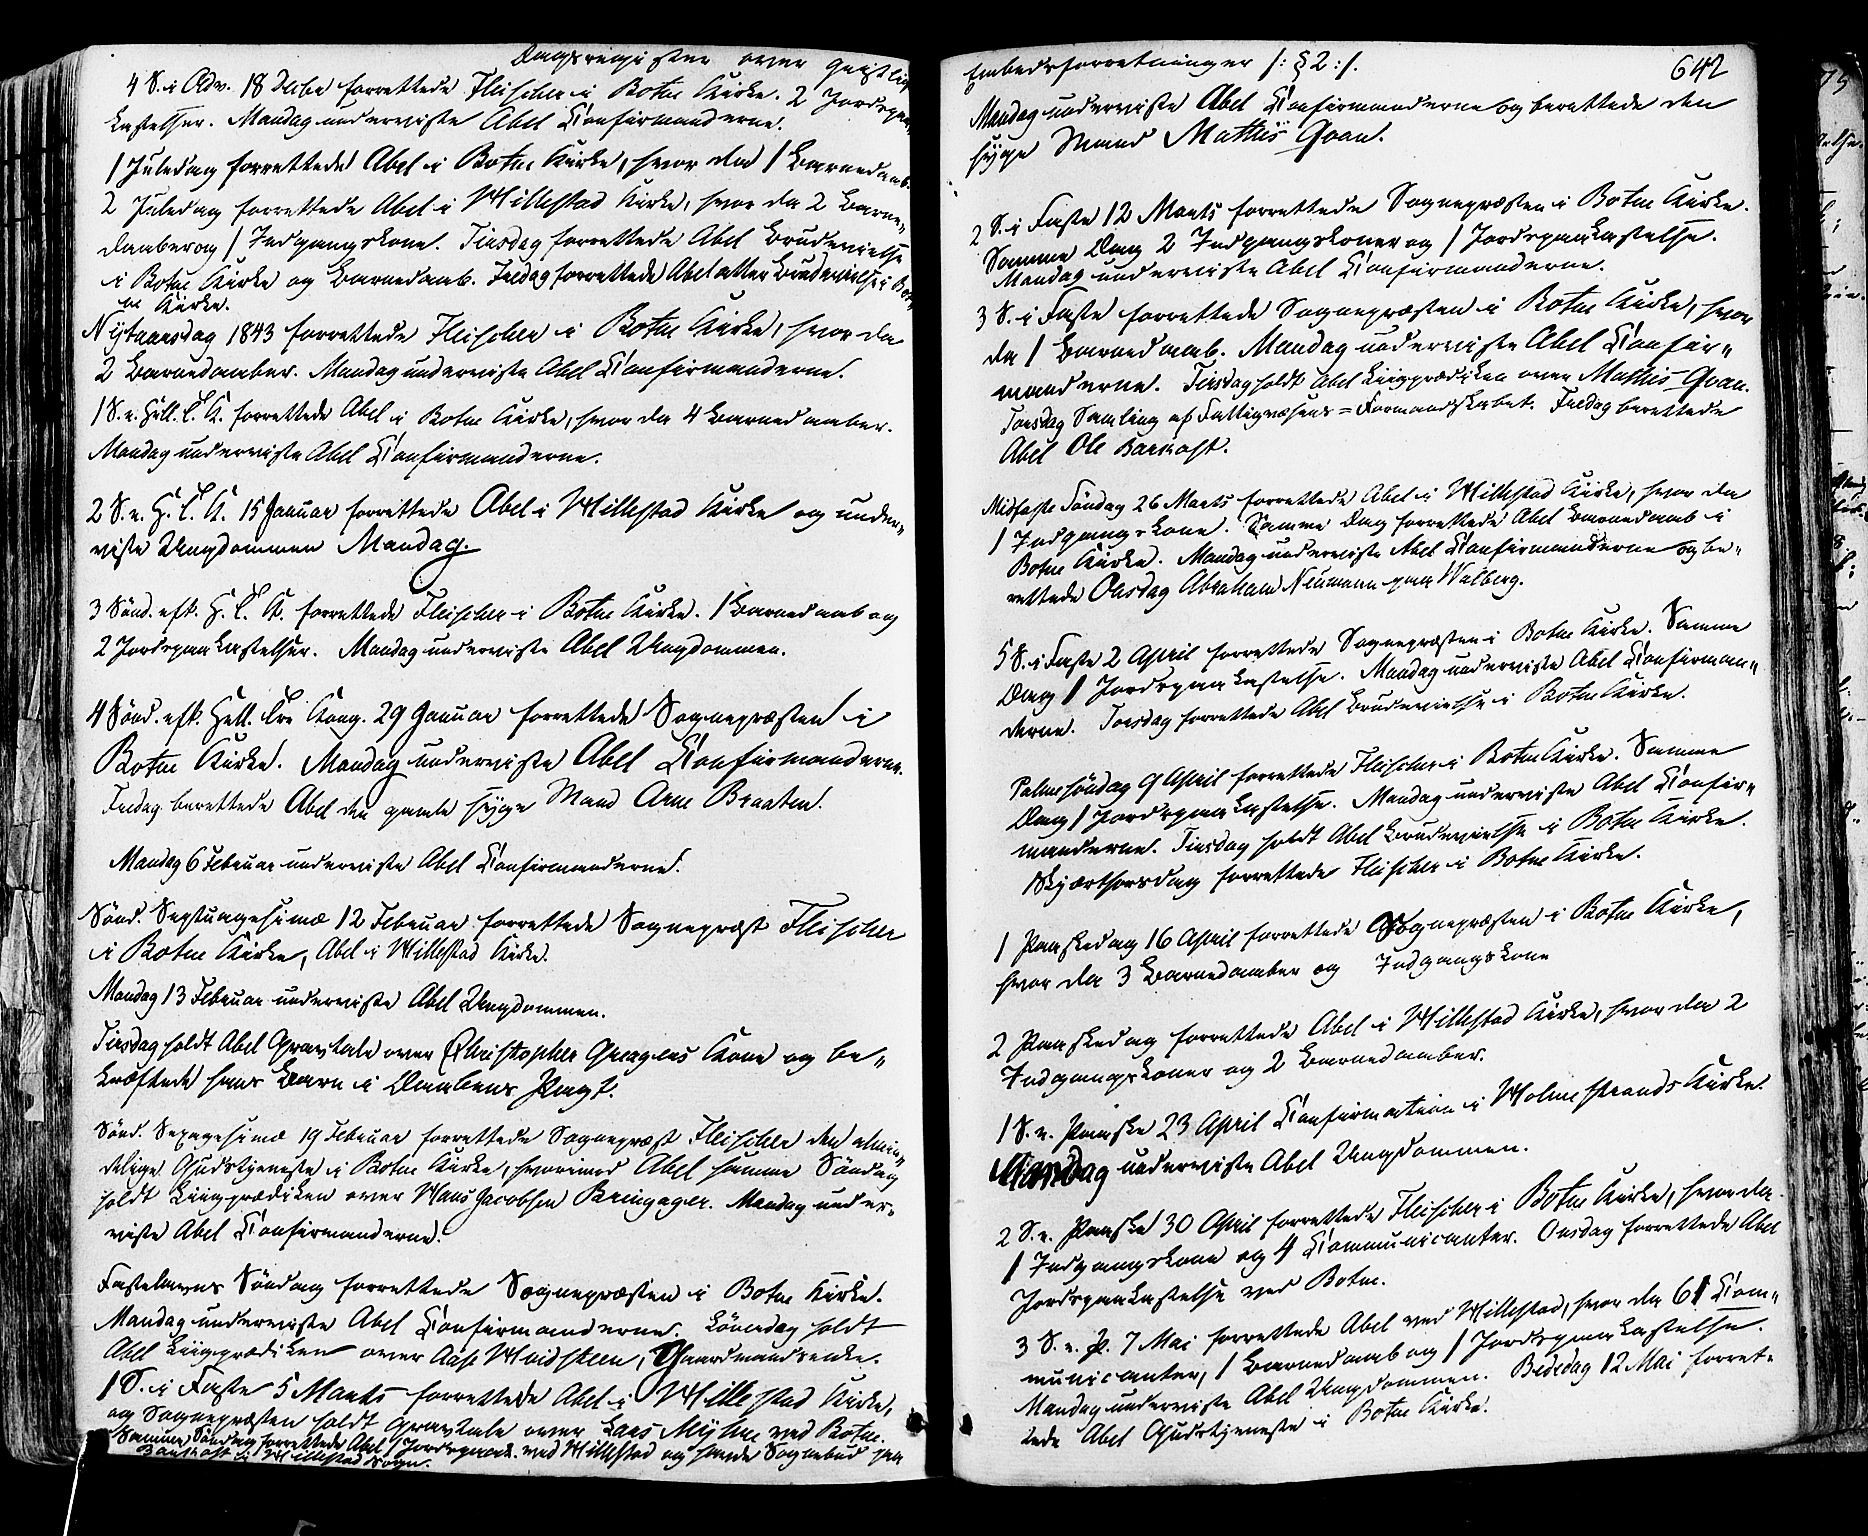 Dagsregister over geistlige
4 S. i Adv. 18 Decbr forrettede Fleischer i Botne Kirke. 2 Jordspaa-
kastelser. Mandag underviste Abel Confirmanderne.
1 Juledag forrettede Abel i Botne Kirke, hvor da 1 Barnedaab.
2 Juledag forrettede Abel i Hillestad Kirke, hvor da 2 Barne-
daaber og 1 Indgangskone. Tirsdag forrettede Abel Brudevielse
i Botne Kirke og Barnedaab. Fredag forrettede Abel atter Brudevielse i Bot-
ne Kirke.
Nytaarsdag 1843 forrettede Fleischer i Botne Kirke, hvor da
2 Barnedaaber. Mandag underviste Abel Confirmanderne.
1 S. e. Hell. 3 K. forrettede Abel i Botne Kirke, hvor da 4 Barnedaaber.
Mandag underviste Abel Confirmanderne.
2 S. e. H. 3 K. 15 Januar forrettede Abel i Hillestad Kirke og under-
viste Ungdommen Mandag.
3 Sönd. eft. H. 3 K. forrettede Fleischer i Botne Kirke. 1 Barnedaab og
2 Jordspaakastelser. Mandag underviste Abel Ungdommen.
4 Sönd. eft. Hell. tre Kong. 29 Januar forrettede Sognepræsten i
Botne Kirke. Mandag underviste Abel Confirmanderne.
Fredag berettede Abel den gamle syge Mand Arne Braaten.
Mandag 6 Februar underviste Abel Confirmanderne.
Sönd. Septuagesimæ 12 Februar forrettede Sognepræst Fleischer
i Botne Kirke, Abel i Hillestad Kirke.
Mandag 13 Februar underviste Abel Ungdommen.
Tirsdag holdt Abel Gravtale over Christopher Greagers Kone og be-
kræftede hans Barn i Daabens Pagt.
Sönd. Sexagesimæ 19 Februar forrettede Sognepræst Fleischer den almin-
delige Gudstjeneste i Botne Kirke, hvorimod Abel samme Söndag
holdt Liigprædiken over Hans Jacobsen Bringager. Mandag under-
viste Abel Confirmanderne.
Fastelavns Söndag forrettede Sognepræsten i Botne Kirke.
Mandag underviste Abel Confirmanderne. Löverdag holdt
Abel Liigprædiken over Aase Hvidsteen, Gaardmandsenke.
1 S. i Faste 5 Marts forrettede Abel i Hillestad Kirke,
og Sognepræsten holdt Gravtale over Lars Myhre ved Botne.
Samme Söndag forrettede Abel 1 Jordspaak. ved Hillestad og havde Sognebud paa
i Hillestad Sogn.
Embedsforretninger /: § 2 :/. 642
Mandag underviste Abel Confirmanderne og berettede den
syge Mand Mathis Goan.
2 S. i Faste 12 Marts forrettede Sognepræsten i Botne Kirke.
Samme Dag 2 Indgangskoner og 1 Jordspaakastelse.
Mandag underviste Abel Confirmanderne.
3 S. i Faste forrettede Sognepræsten i Botne Kirke, hvor
da 1 Barnedaab. Mandag underviste Abel Confir-
manderne. Tirsdag holdt Abel Liigprædiken over Mathis Goan.
Torsdag Samling af Fattigvæsens=Formandskabet. Fredag berettede
Abel Ole
Midfaste Söndag 26 Marts forrettede Abel i Hillestad Kirke, hvor da
1 Indgangskone. Samme Dag forrettede Abel Barnedaab i
Botne Kirke. Mandag underviste Abel Confirmanderne og be-
rettede Onsdag Abraham Neumann paa Walberg.
5 S. i Faste 2 April forrettede Sognepræsten i Botne Kirke. Samme
Dag 1 Jordspaakastelse. Mandag underviste Abel Confirman-
derne. Torsdag forrettede Abel Brudevielse i Botne Kirke.
Palmesöndag 9 April forrettede Fleischer i Botne Kirke. Samme
Dag 1 Jordspaakastelse. Mandag underviste Abel Confir-
manderne. Tirsdag holdt Abel Brudevielse i Botne Kirke.
Skjærthorsdag forrettede Fleischer i Botne Kirke.
1 Paaskedag 16 April forrettede Sognepræsten i Botne Kirke,
hvor da 3 Barnedaaber og Indgangskone
2 Paaskedag forrettede Abel i Hillestad Kirke, hvor da 2
Indgangskoner og 2 Barnedaaber.
1 S. e. Paaske 23 April Confirmation i Holmestrands Kirke.
Mandag underviste Abel Ungdommen.
2 S. e. Paaske 30 April forrettede Fleischer i Botne Kirke, hvor da
1 Indgangskone og 4 Communicanter. Onsdag forrettede Abel
Jordspaakastelse ved Botne.
3 S. e. P. 7 Mai forrettede Abel ved Hillestad, hvor da 61 Com-
municanter, 1 Barnedaab og 1 Jordspaakastelse.
Mandag underviste Abel Ungdommen. Bededag 12 Mai forret-
tede Abel Gudstjeneste i Botne Kirke.